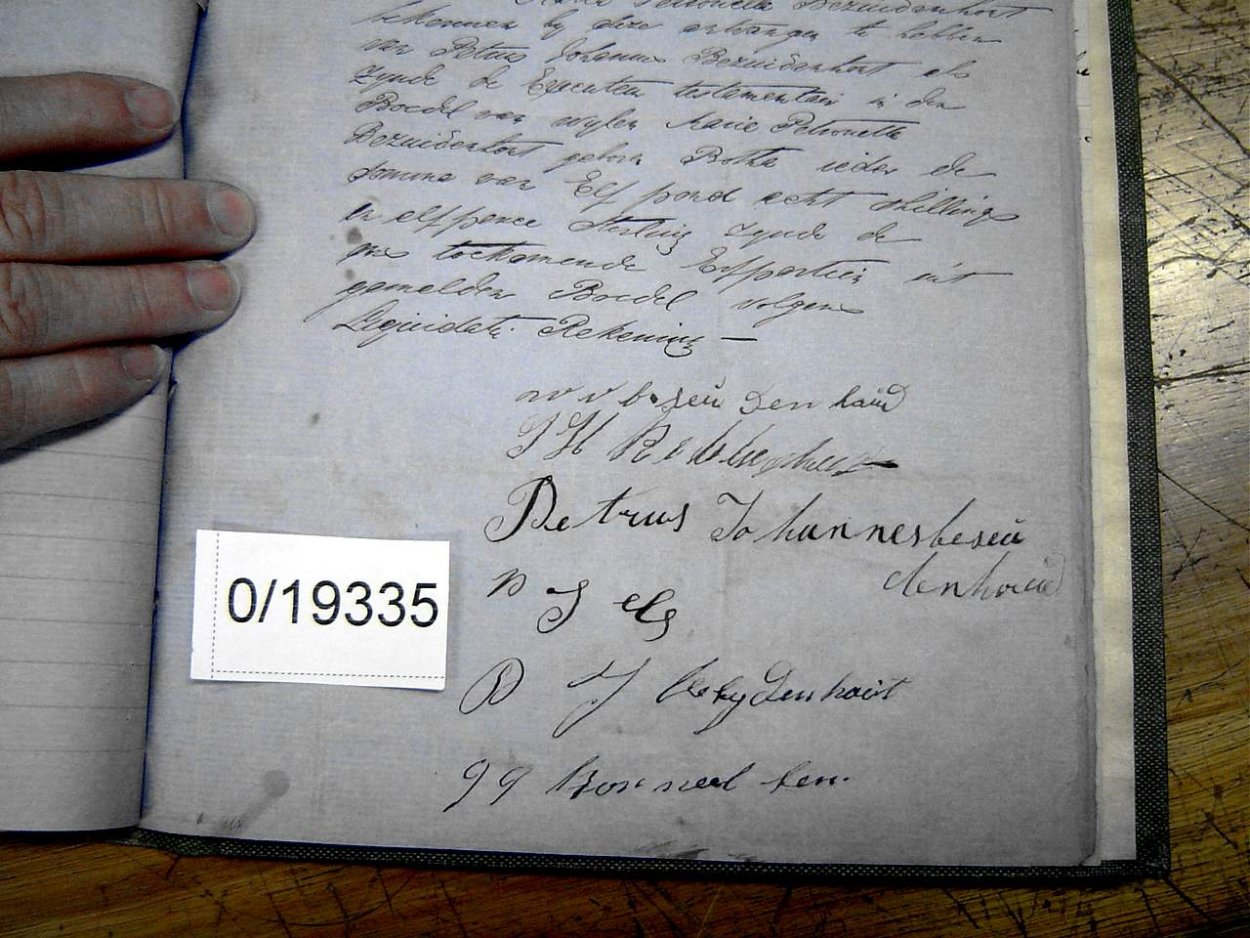 Maria Petronella Bezuidenhout
bekennen by deze ontvangen te hebben
van Petrus Johannes Bezuidenhout als
Zynde de Executeur testamentair in den
Boedel van wylen Maria Petronella
Bezuidenhout geboren Botha ieder de
Somma van Elf pond acht shillings
en elfpence Sterling Zynde de
ons toekomende Erfportien uit
gemelden Boedel volgens
Liquidatie Rekening —
w v beseudenhaud
S H
Petrus Johannes beseu
denhoud
P J Els
0/19335
P J Besydenhout